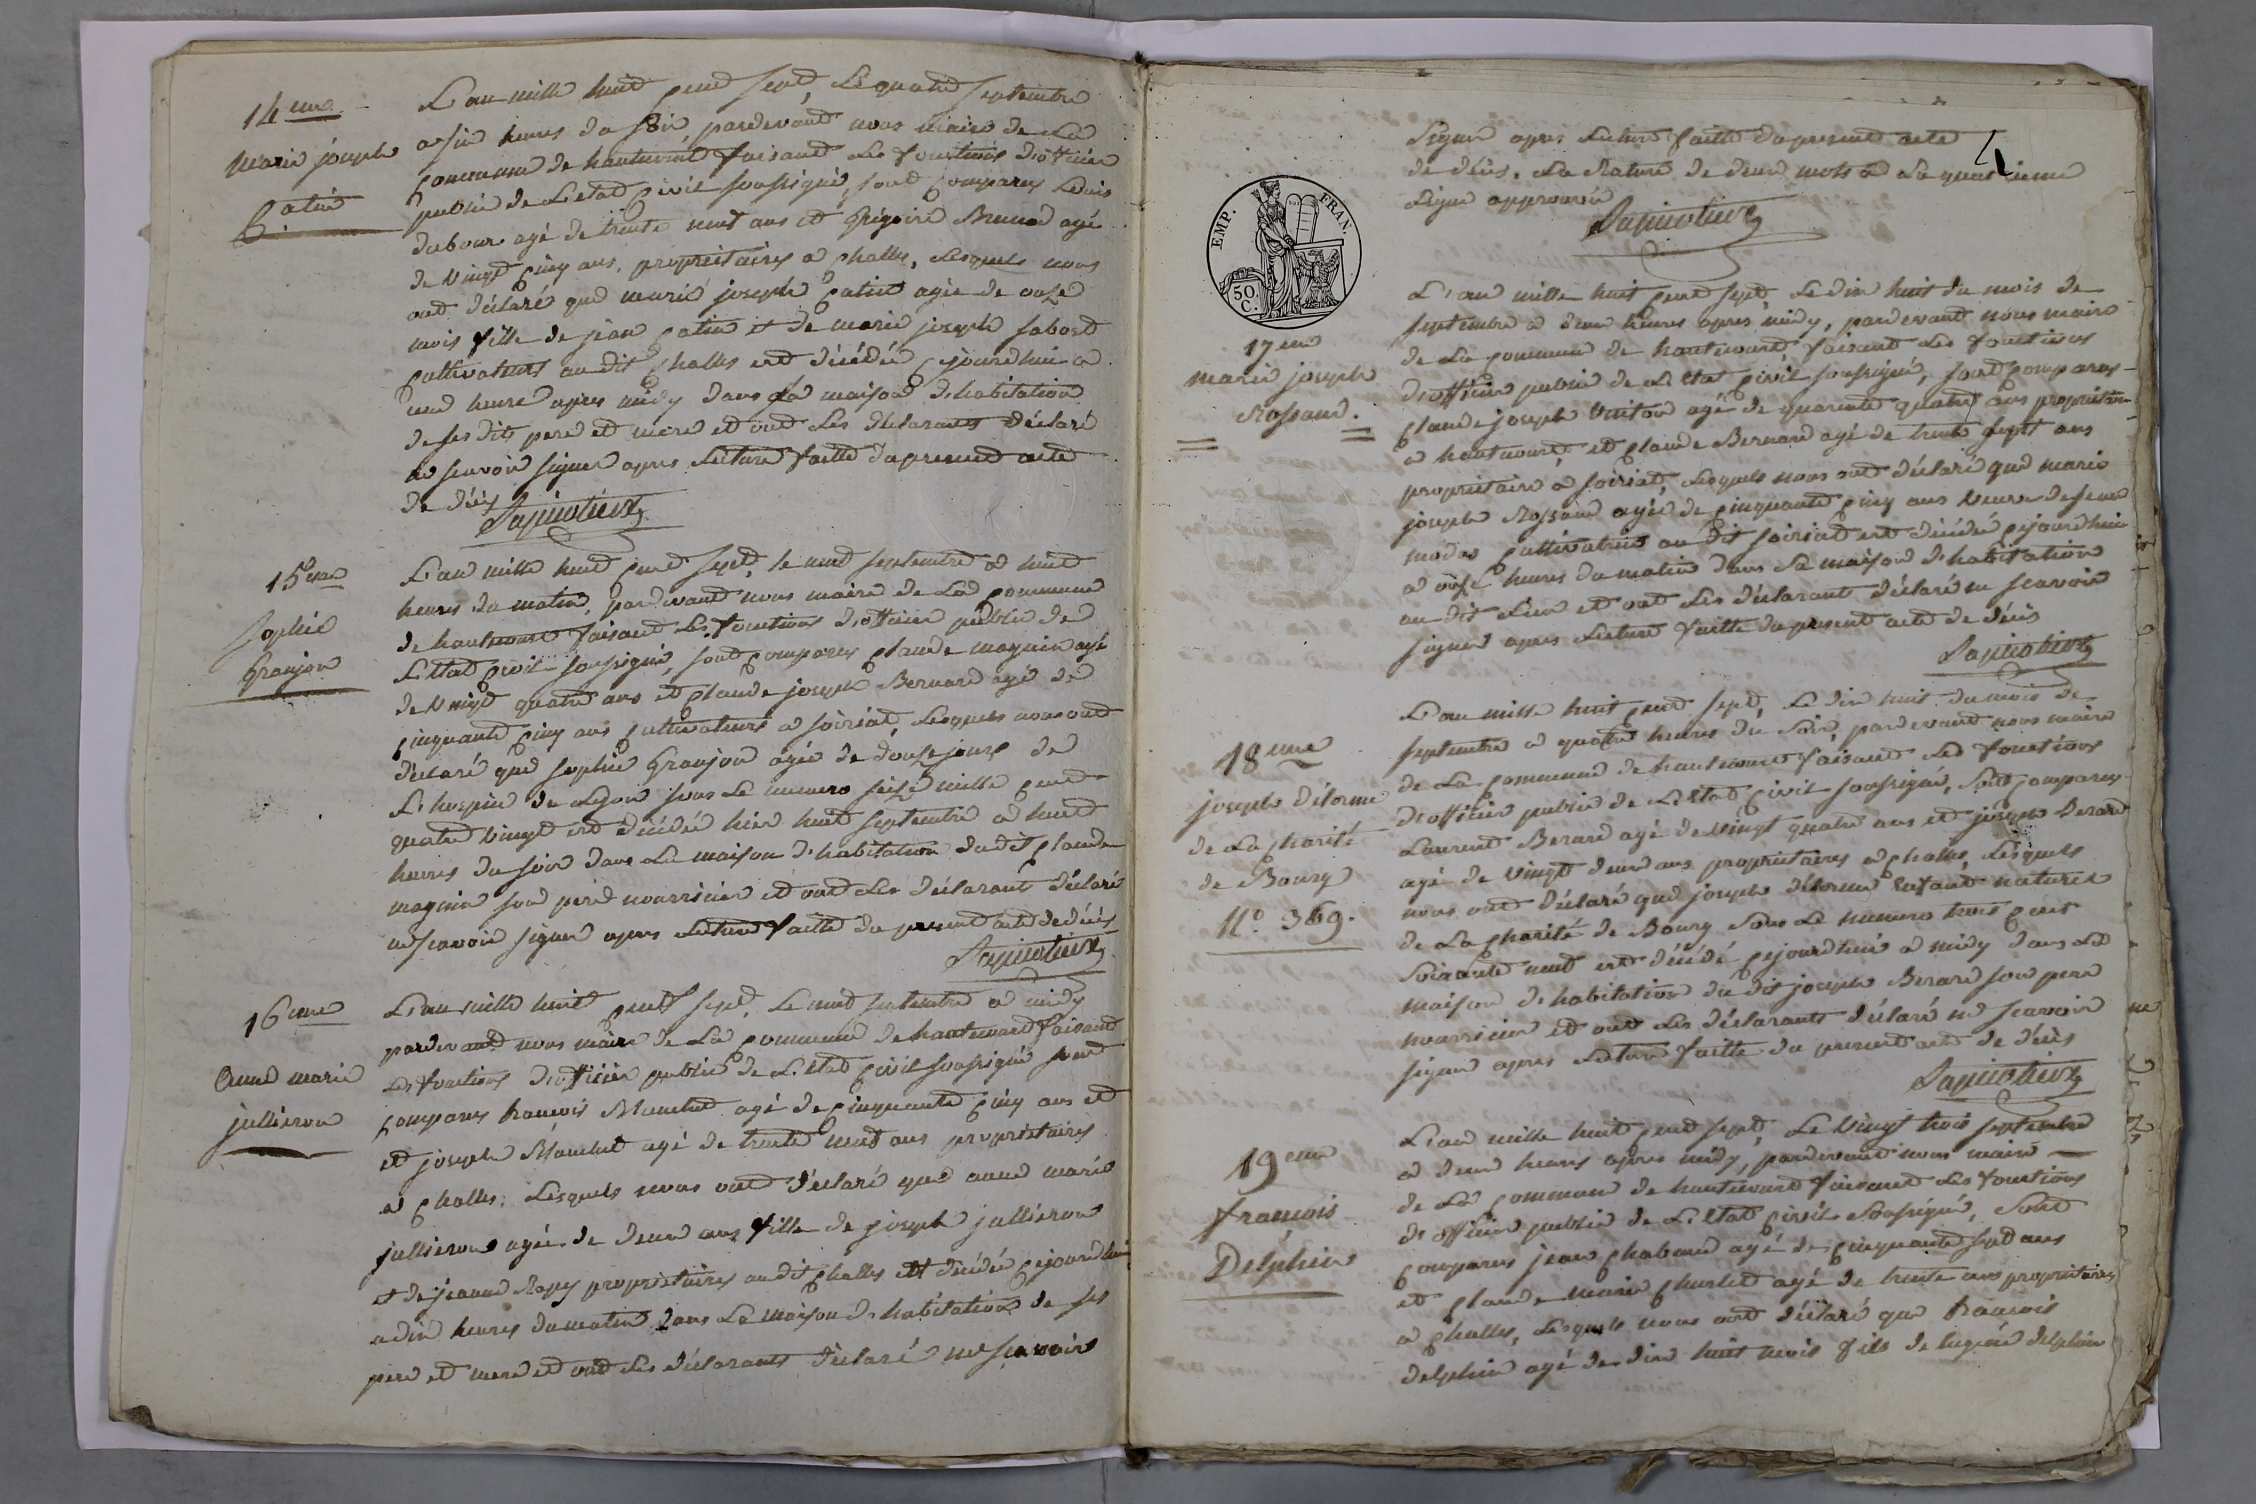 14eme
Marie joseph
Catin
L'an mille huit cent sept, Le quatre septembre
a six heures du soir, pardevant nous maire de La
commune de hautecourt faisant Les fonctions d'officier
public de L'etat civil soussigné, sont comparus Louis
dubour agé de trente neuf ans et Grégoire Brunod agé
de vingt cinq ans, proprietaires a challes, Lesquels nous
ont déclaré que marie joseph catin agée de onze
mois fille de jean catin et de marie joseph
cultivateurs au dit challes est décédée cejourdhui a
une heure apres midy dans La maison d'habitation
de ses dits pere et mere et ont Les déclarants déclaré
ne scavoir signer apres Lecture faitte du present acte
de décès
15eme
Sophie
Granjon
L'an mille huit cent sept, le neuf septembre a huit
heures du matin, pardevant nous maire de La commune
de hautecourt faisant Les fonctions d'officier public de
L'etat civil soussigné, sont comparus claude magnin agé
de vingt quatre ans et claude joseph Bernard agé de
cinquante cinq ans cultivateurs a soiriat, Lesquels nous ont
déclaré que sophie Granjon agée de douze jours de
L'hospice de Lyon sous Le numero seize mille cent
quatre vingt est décédée hier huit septembre a huit
heures du soir dans La maison d'habitation du dit claude
magnin son père nourricier et ont Les déclarants déclaré
ne scavoir signer apres Lecture faitte du present acte de décès
16eme
Anne marie
jullieron
L'an mille huit cent sept, Le neuf septembre a midy
pardevant nous maire de La commune de hautecourt faisant
Les fonctions d'officier public de L'etat civil soussigné sont
comparus francois Blanchet agé de cinquante cinq ans et
et joseph Blanchet agé de trente neuf ans proprietaires
a challes, Lesquels nous ont déclaré que anne marie
jullieron agée de deux ans fille de joseph jullieron
et de jeanne proprietaires au dit challes est décédée cejourdhui
a dix heures du matin dans La maison d'habitation de ses
pere et mere et ont Les déclarants déclaré ne scavoir
signer apres Lecture faitte du present acte
de décès. La rature de deux mots a La quatrieme
Ligne approuvée
EMP. FRAN.
50 C.
17eme
marie joseph
Rossand.
L'an mille huit cent sept, Le dix huit du mois de
septembre a deux heures apres midy, pardevant nous maire
de La commune de hautecourt faisant Les fonctions
d'officier public de L'etat civil soussigné, sont comparus
claude joseph agé de quarente quatre ans proprietaire
a hautecourt, et claude Bernard agé de trente sept ans
proprietaire a soiriat, Lesquels nous ont déclaré que marie
joseph Rossand agée de cinquante cinq ans veuve de
cultivatrice au dit soiriat est décédée cejourdhui
a onze heures du matin dans La maison d'habitation
au dit Lieu et ont Les déclarants déclaré ne scavoir
signer apres Lecture faitte du present acte de décès
18eme
joseph délorme
de La charité
de Bourg
N.o 369.
L'an mille huit cent sept, Le dix huit du mois de
septembre a quatre heures du soir, pardevant nous maire
de La commune de hautecourt faisant Les fonctions
d'officier public de L'etat civil soussigné, sont comparus
Laurent Berard agé de vingt quatre ans et joseph Berard
agé de vingt deux ans proprietaires a challes, Lesquels
nous ont déclaré que joseph délorme enfant naturel
de La charité de Bourg sous Le numero trois cent
soixante neuf est décédé cejourdhui a midy dans La
maison d'habitation du dit joseph Berard son pere
nourricier et ont Les déclarants déclaré ne scavoir
signer apres Lecture faitte du present acte de décès
19eme
françois
Delphin
L'an mille huit cent sept, Le vingt trois septembre
a deux heures apres midy, pardevant nous maire
de La commune de hautecourt faisant Les fonctions
d'officier public de L'etat civil soussigné, sont
comparus jean chaband agé de cinquante sept ans
et claude marie agé de trente ans proprietaires
a challes, Lesquels nous ont déclaré que francois
delphin agé de dix huit mois fils de delphin